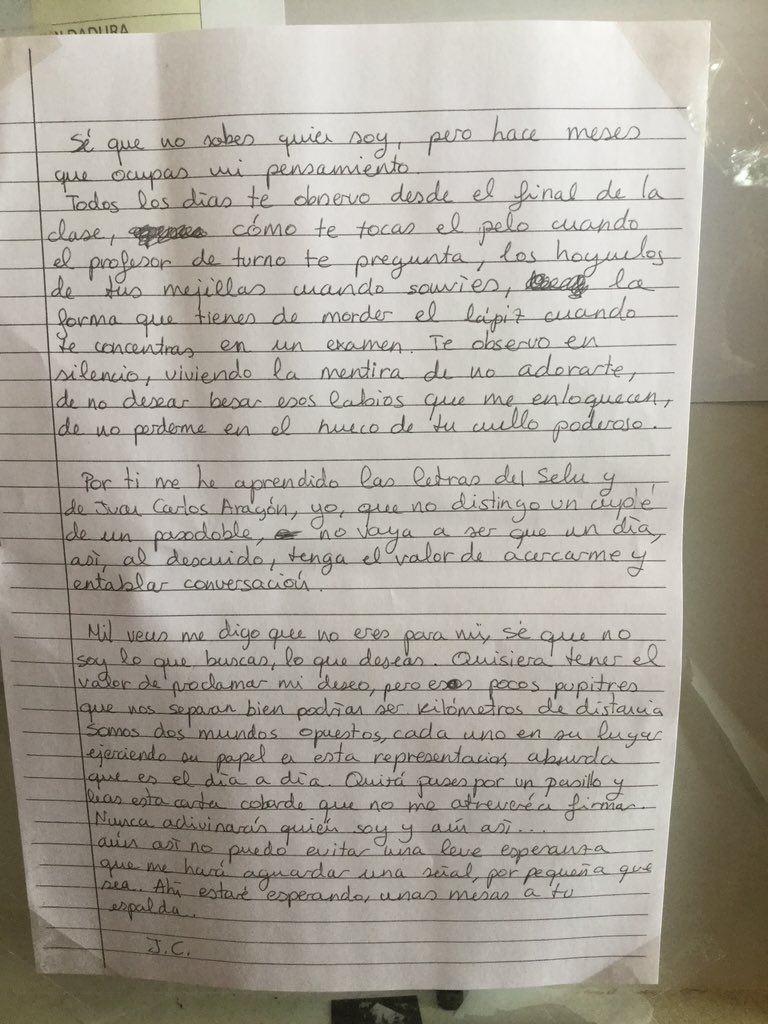 NDADURA
Sé que no sabes quien soy, pero hace meses
que ocupas mi pensamiento.
Todos los días te observo desde el final de la
clase, cómo te tocas el pelo cuando
el profesor de turno te pregunta, los hoyuelos
de tus mejillas cuando sonríes, la
forma que tienes de morder el lápiz cuando
te concentras en un examen. Te observo en
silencio, viviendo la mentira de no adorarte,
de no desear besar esos labios que me enloquecen,
de no perderme en el hueco de tu cuello poderoso.
Por ti me he aprendido las letras del Selu y
de Juan Carlos Aragón, yo, que no distingo un cuplé
de un pasodoble, no vaya a ser que un día,
así, al descuido, tenga el valor de acercarme y
entablar conversación.
Mil veces me digo que no eres para mí, sé que no
soy lo que buscas, lo que deseas. Quisiera tener el
valor de proclamar mi deseo, pero esos pocos pupitres
que nos separan bien podrían ser kilómetros de distancia
Somos dos mundos opuestos, cada uno en su lugar
ejerciendo su papel en esta representación absurda
que es el día a día. Quizá pases por un pasillo y
leas esta carta cobarde que no me atreveré a firmar.
Nunca adivinarás quién soy y aún así...
aún así no puedo evitar una leve esperanza
que me hará aguardar una señal, por pequeña que
sea. Ahí estaré esperando, unas mesas a tu
espalda.
J.C.